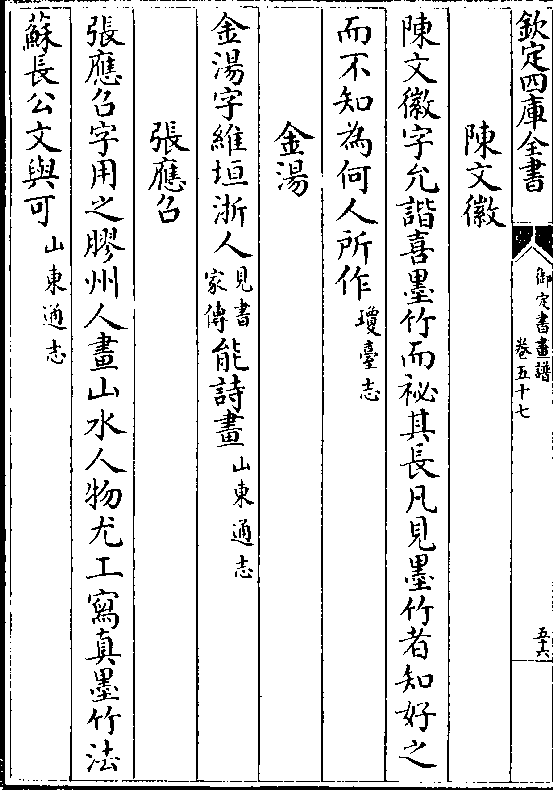 欽定四庫全書
御定書畫譜
卷五十七
五六
陳文徽
陳文徽字允諧喜墨竹而祕其長凡見墨竹者知好之
而不知為何人所作瓊臺志
金湯
金湯字維垣浙人見書家傳能詩畫山東通志
張應召
張應召字用之膠州人畫山水人物尤工寫真墨竹法
蘇長公文與可山東通志